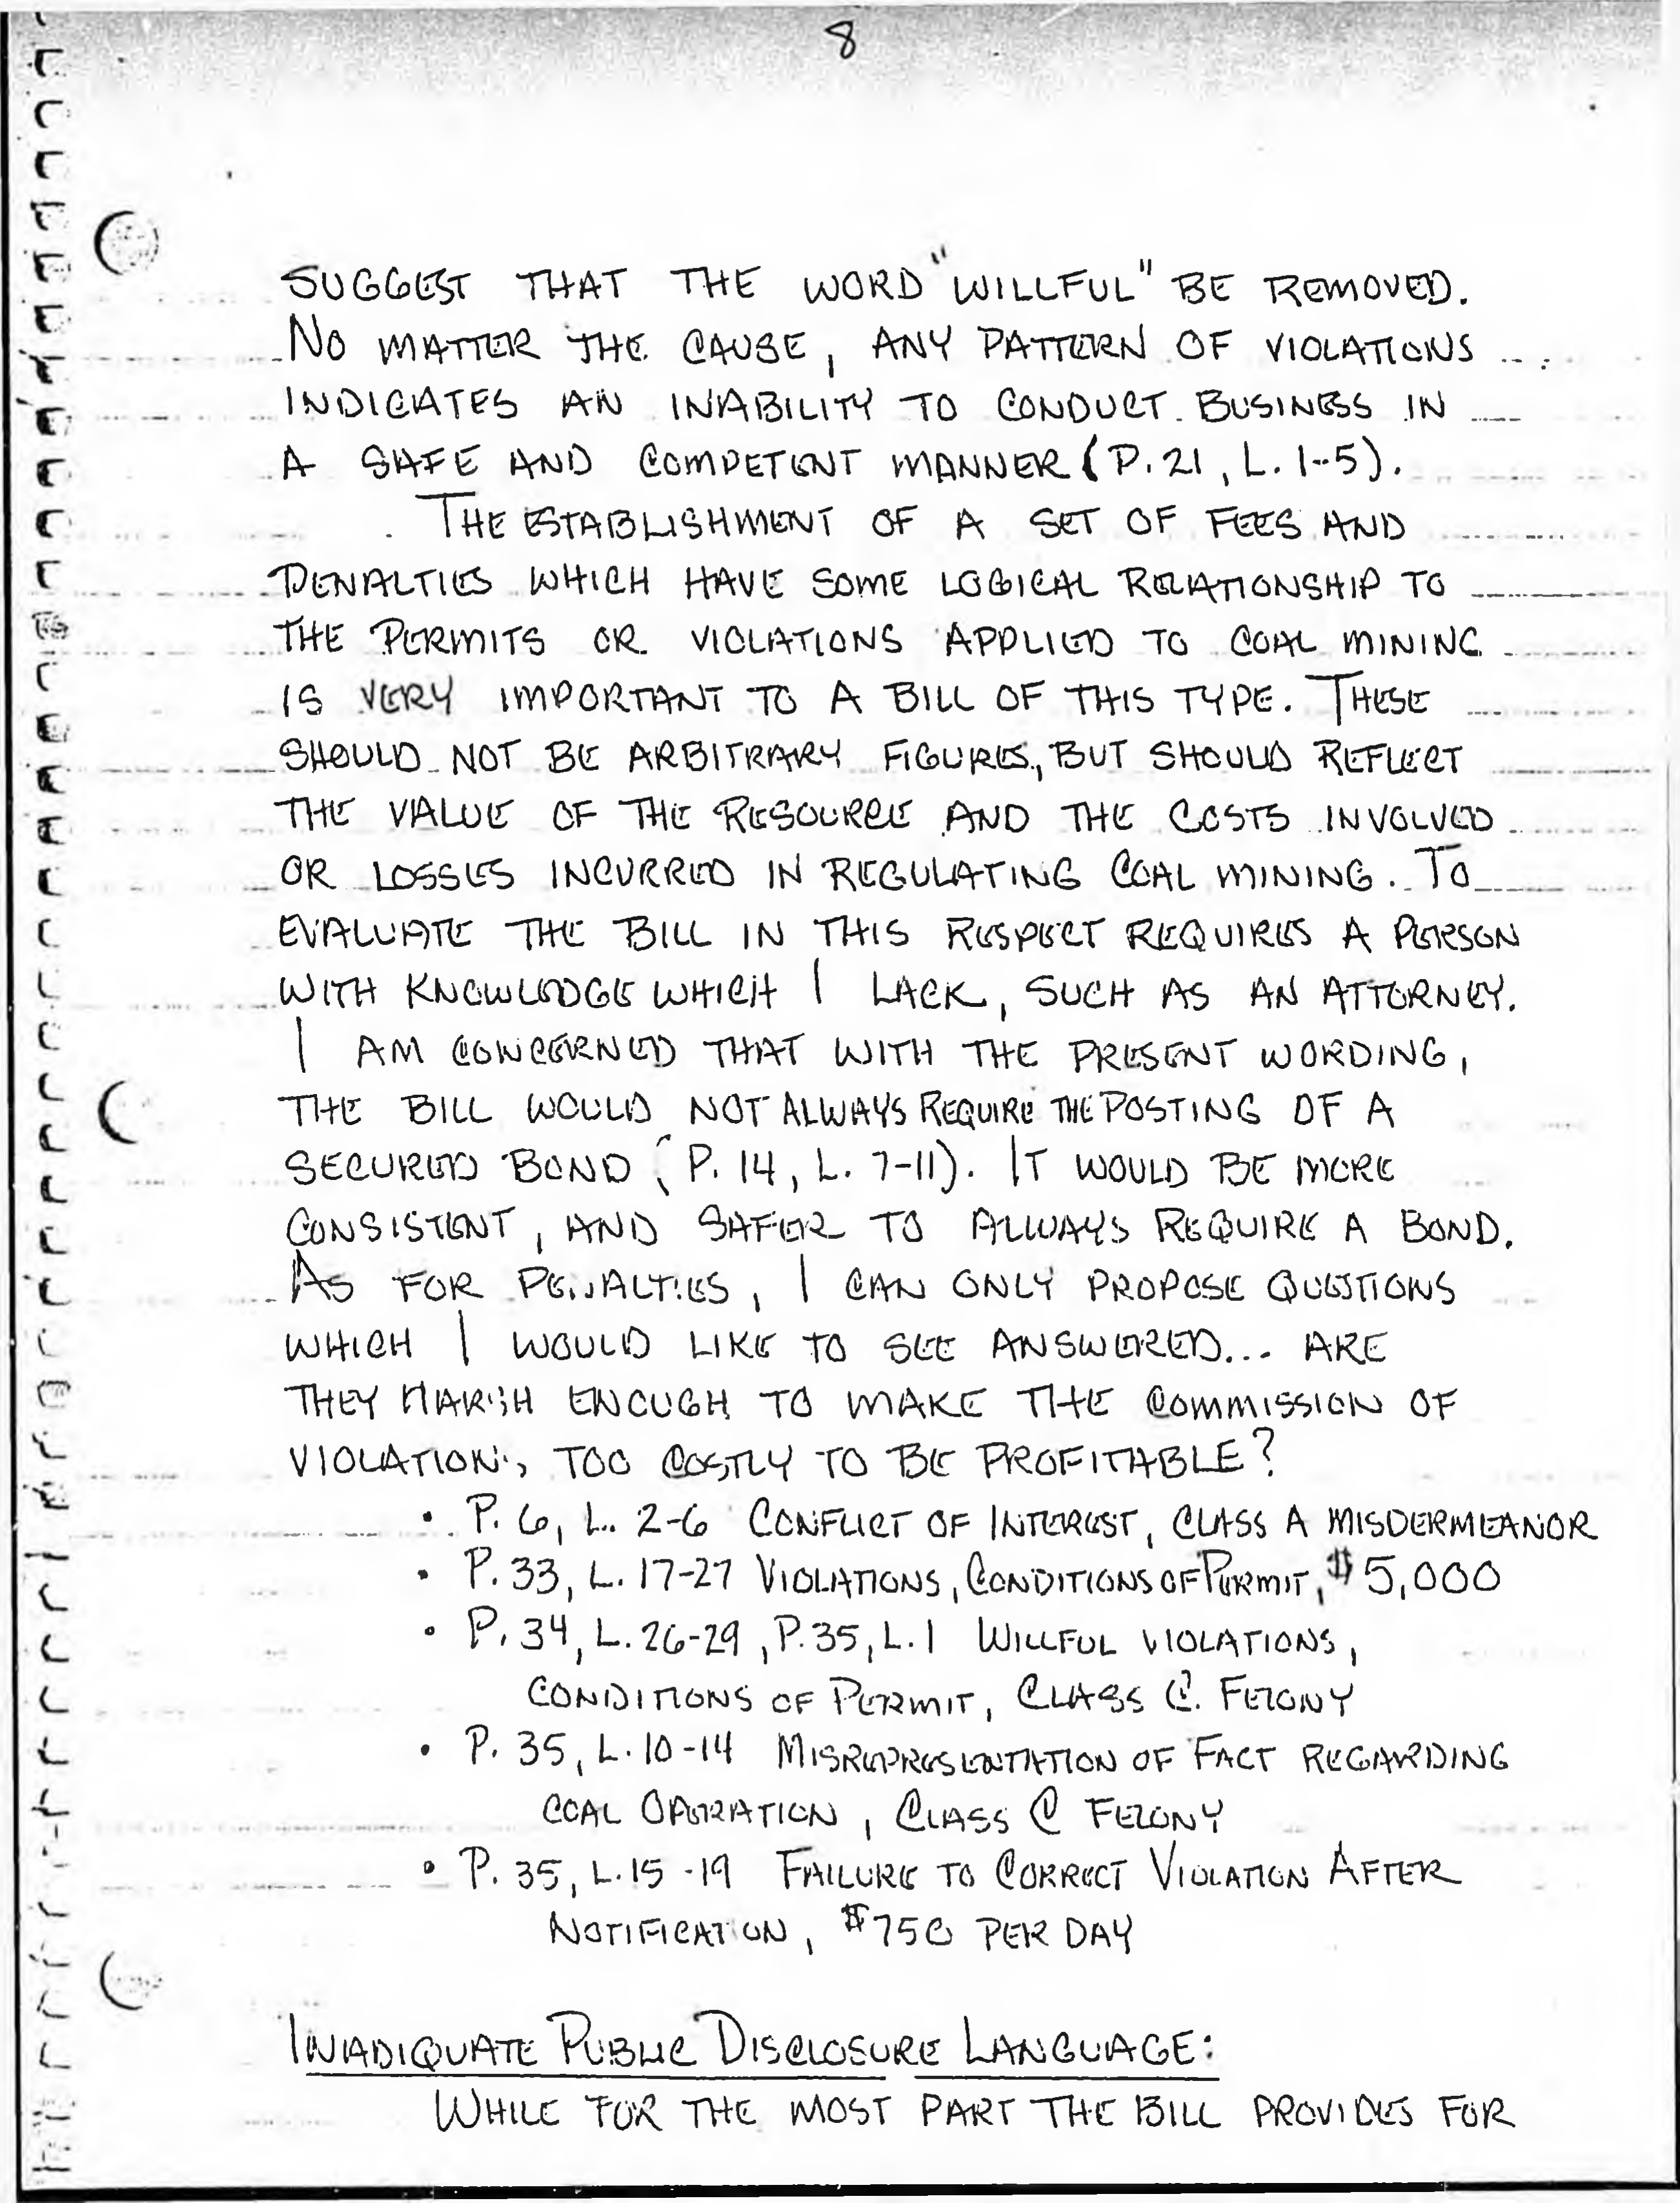 8
SUGGEST THAT THE WORD "WILLFUL" BE REMOVED.
NO MATTER THE CAUSE, ANY PATTERN OF VIOLATIONS
INDICATES AN INABILITY TO CONDUCT BUSINESS IN
A SAFE AND COMPETENT MANNER (P. 21, L. 1-5).
THE ESTABLISHMENT OF A SET OF FEES AND
PENALTIES WHICH HAVE SOME LOGICAL RELATIONSHIP TO
THE PERMITS OR VIOLATIONS APPLIED TO COAL MINING
IS VERY IMPORTANT TO A BILL OF THIS TYPE. THESE
SHOULD NOT BE ARBITRARY FIGURES, BUT SHOULD REFLECT
THE VALUE OF THE RESOURCE AND THE COSTS INVOLVED
OR LOSSES INCURRED IN REGULATING COAL MINING. TO
EVALUATE THE BILL IN THIS RESPECT REQUIRES A PERSON
WITH KNOWLEDGE WHICH I LACK, SUCH AS AN ATTORNEY.
I AM CONCERNED THAT WITH THE PRESENT WORDING,
THE BILL WOULD NOT ALWAYS REQUIRE THE POSTING OF A
SECURED BOND (P. 14, L. 7-11). IT WOULD BE MORE
CONSISTENT, AND SAFER TO ALWAYS REQUIRE A BOND.
AS FOR PENALTIES, I CAN ONLY PROPOSE QUESTIONS
WHICH I WOULD LIKE TO SEE ANSWERED... ARE
THEY HARSH ENOUGH TO MAKE THE COMMISSION OF
VIOLATIONS, TOO COSTLY TO BE PROFITABLE?
• P. 6, L. 2-6 CONFLICT OF INTEREST, CLASS A MISDERMEANOR
• P. 33, L. 17-27 VIOLATIONS, CONDITIONS OF PERMIT, $5,000
• P. 34, L. 26-29, P. 35, L. 1 WILLFUL VIOLATIONS,
CONDITIONS OF PERMIT, CLASS C. FELONY
• P. 35, L. 10-14 MISREPRESENTATION OF FACT REGARDING
COAL OPERATION, CLASS C FELONY
• P. 35, L. 15-19 FAILURE TO CORRECT VIOLATION AFTER
NOTIFICATION, $750 PER DAY
INADIQUATE PUBLIC DISCLOSURE LANGUAGE:
WHILE FOR THE MOST PART THE BILL PROVIDES FOR